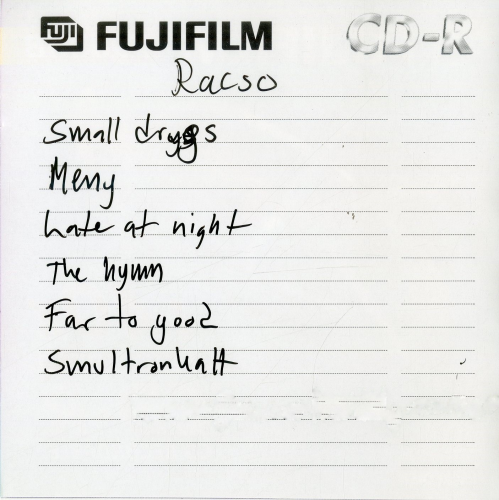 FUJI FUJIFILM CD-R
Racso
Small drggs
Meny
Late at night
The hymn
Far to good
Smultronkatt